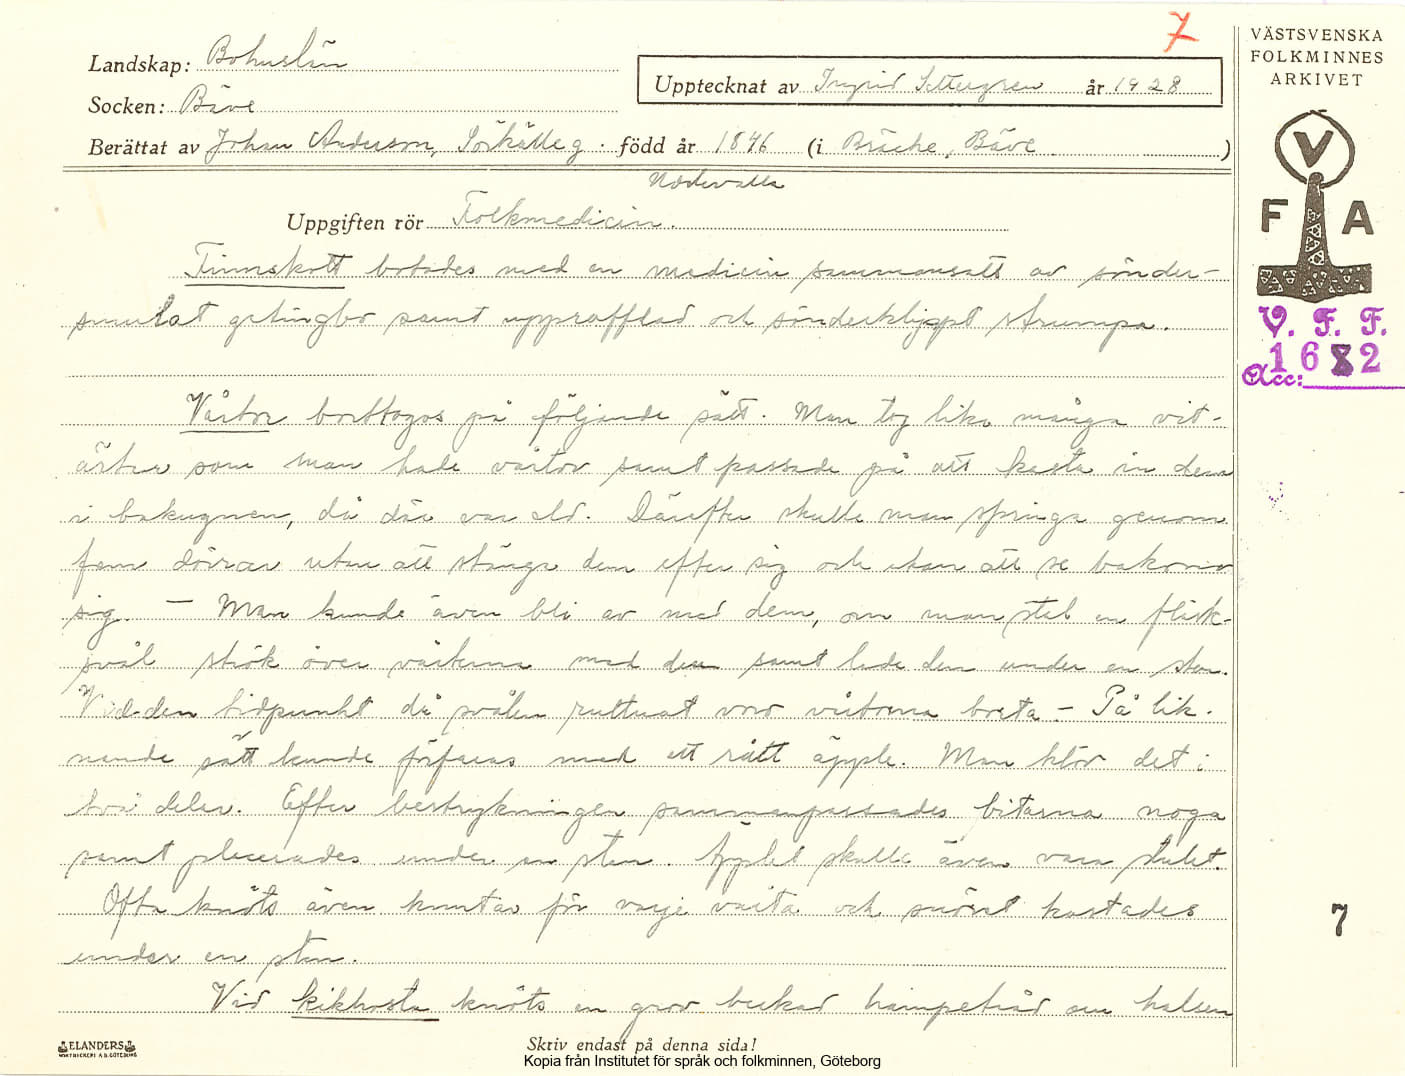 7
VÄSTSVENSKA
FOLKMINNES
ARKIVET
Landskap: Bohuslän
Upptecknat av Ingrid Settergren år 1928
Socken: Bäve
Berättat av Johan Anderson, född år 1846 (i Bräcke, Bäve )
Uddevalla
Uppgiften rör Folkmedicin.
V
F A
V. F. F.
1682
Acc:
Finnskott botades med en medicin sammansatt av sönder-
smulat getingbo samt upprafflad och sönderklippt strumpa.
Vårtor borttogos på följande sätt. Man tog lika många vit-
ärter som man hade vårtor samt passade på att kasta in dem
i bakugnen, då där var eld. Därefter skulle man springa genom
fem dörrar utan att stänga dem efter sig och utan att se bakom
sig. — Man kunde även bli av med dem, om man stal en fläsk-
svål strök över vårtorna med den samt lade den under en sten.
Vid den tidpunkt då svålen ruttnat voro vårtorna borta – På lik-
nande sätt kunde förfaras med ett rått äpple. Man klöv det i
två delar. Efter bestrykningen sammanpassades bitarna noga
samt placerades under en sten. Äpplet skulle även vara stulet.
Ofta knöts även knutar för varje vårta och snöret kastades
under en sten.
7
Vid kikhosta knöts en grov beckad hampetråd om halsen
ELANDERS
BOKTRYCKERI A.B. GÖTEBORG
Skriv endast på denna sida!
Kopia från Institutet för språk och folkminnen, Göteborg